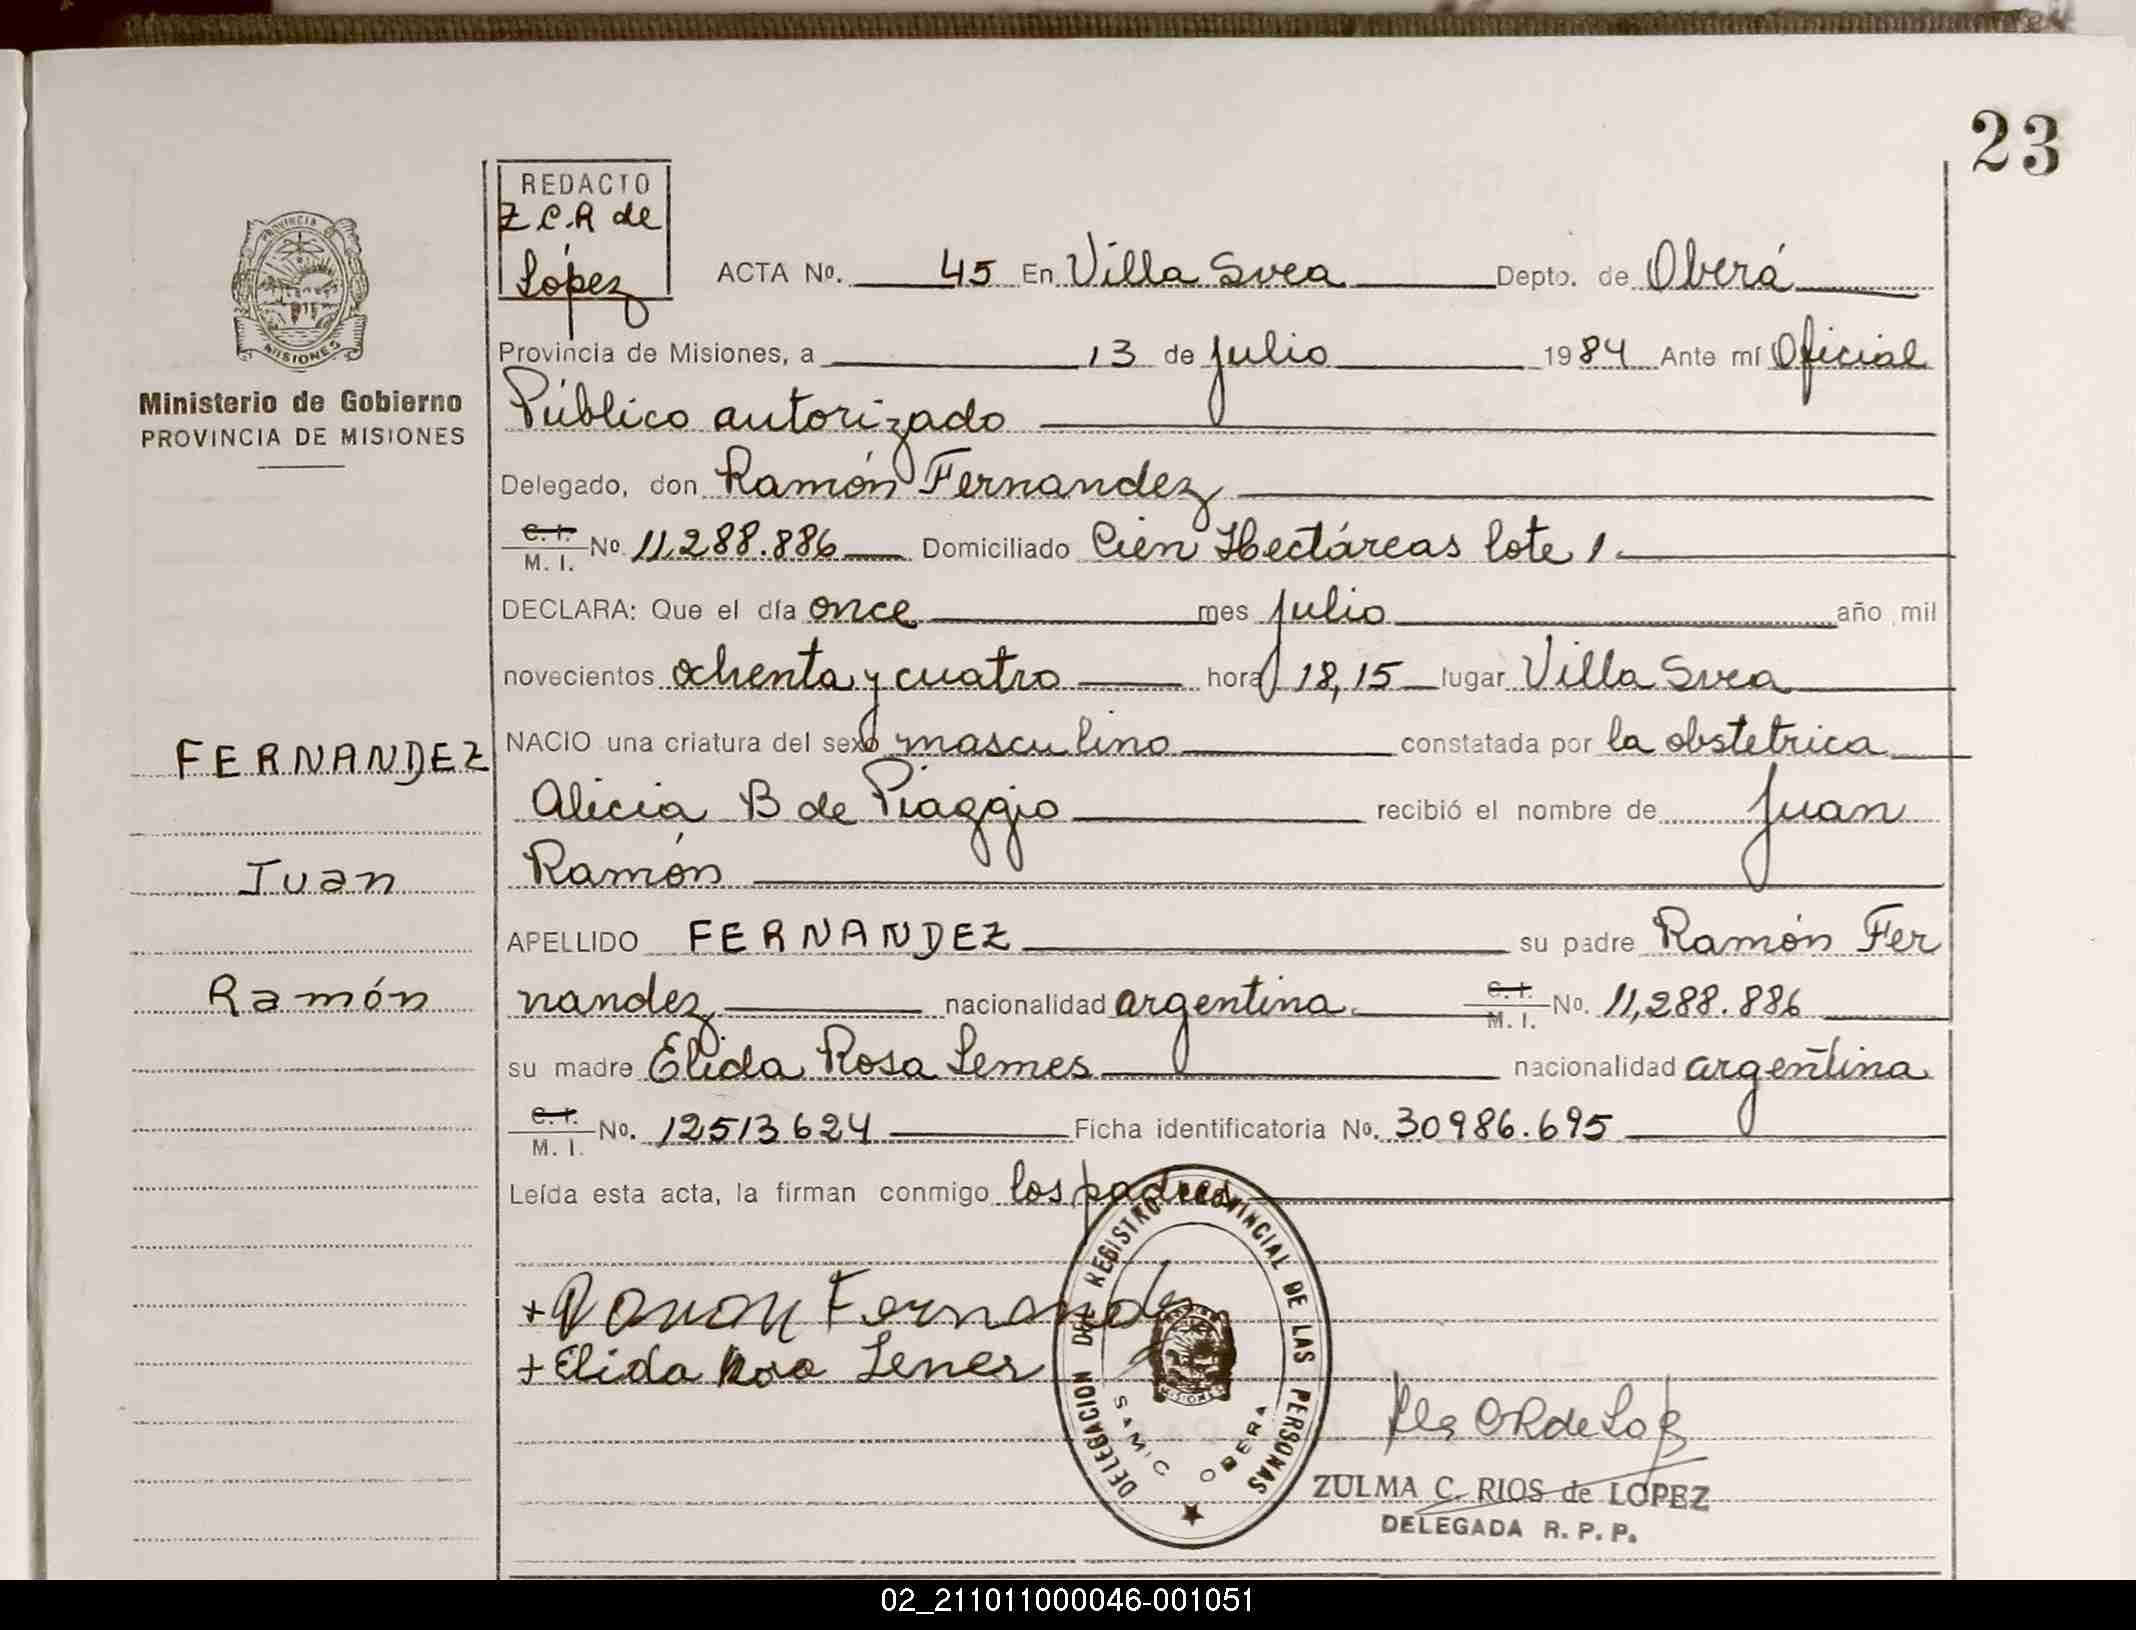 23
REDACTO
Z.C.R de
López
PROVINCIA D
MISIONES
Ministerio de Gobierno
PROVINCIA DE MISIONES
ACTA No. 45 En Villa Svea Depto. de Oberá
Provincia de Misiones, a 13 de julio 1984 Ante mí Oficial
Público autorizado
Delegado, don Ramón Fernandez
C. I. M. I. No. 11.288.886 Domiciliado Cien Hectáreas lote 1
DECLARA: Que el día once mes julio año mil
novecientos ochenta y cuatro hora 18,15 lugar Villa Svea
NACIO una criatura del sexo masculino constatada por la obstetrica
Alicia B de Piaggio recibió el nombre de Juan
Ramón
APELLIDO FERNANDEZ su padre Ramón Fer
nandez nacionalidad argentina C. I. M. I. No. 11,288.886
su madre Elida Rosa Lemes nacionalidad argentina
C. I. M. I. No. 12513624 Ficha identificatoria No. 30986.695
Leída esta acta, la firman conmigo los padres
FERNANDEZ
Juan
Ramón
+ Ramon Fernandez
+ Elida Rosa Lemes
DELEGACION DEL REGISTRO PROVINCIAL DE LAS PERSONAS
MISIONES
SAMIC OBERA
ZULMA C. RIOS de LOPEZ
DELEGADA R. P. P.
02_211011000046-001051